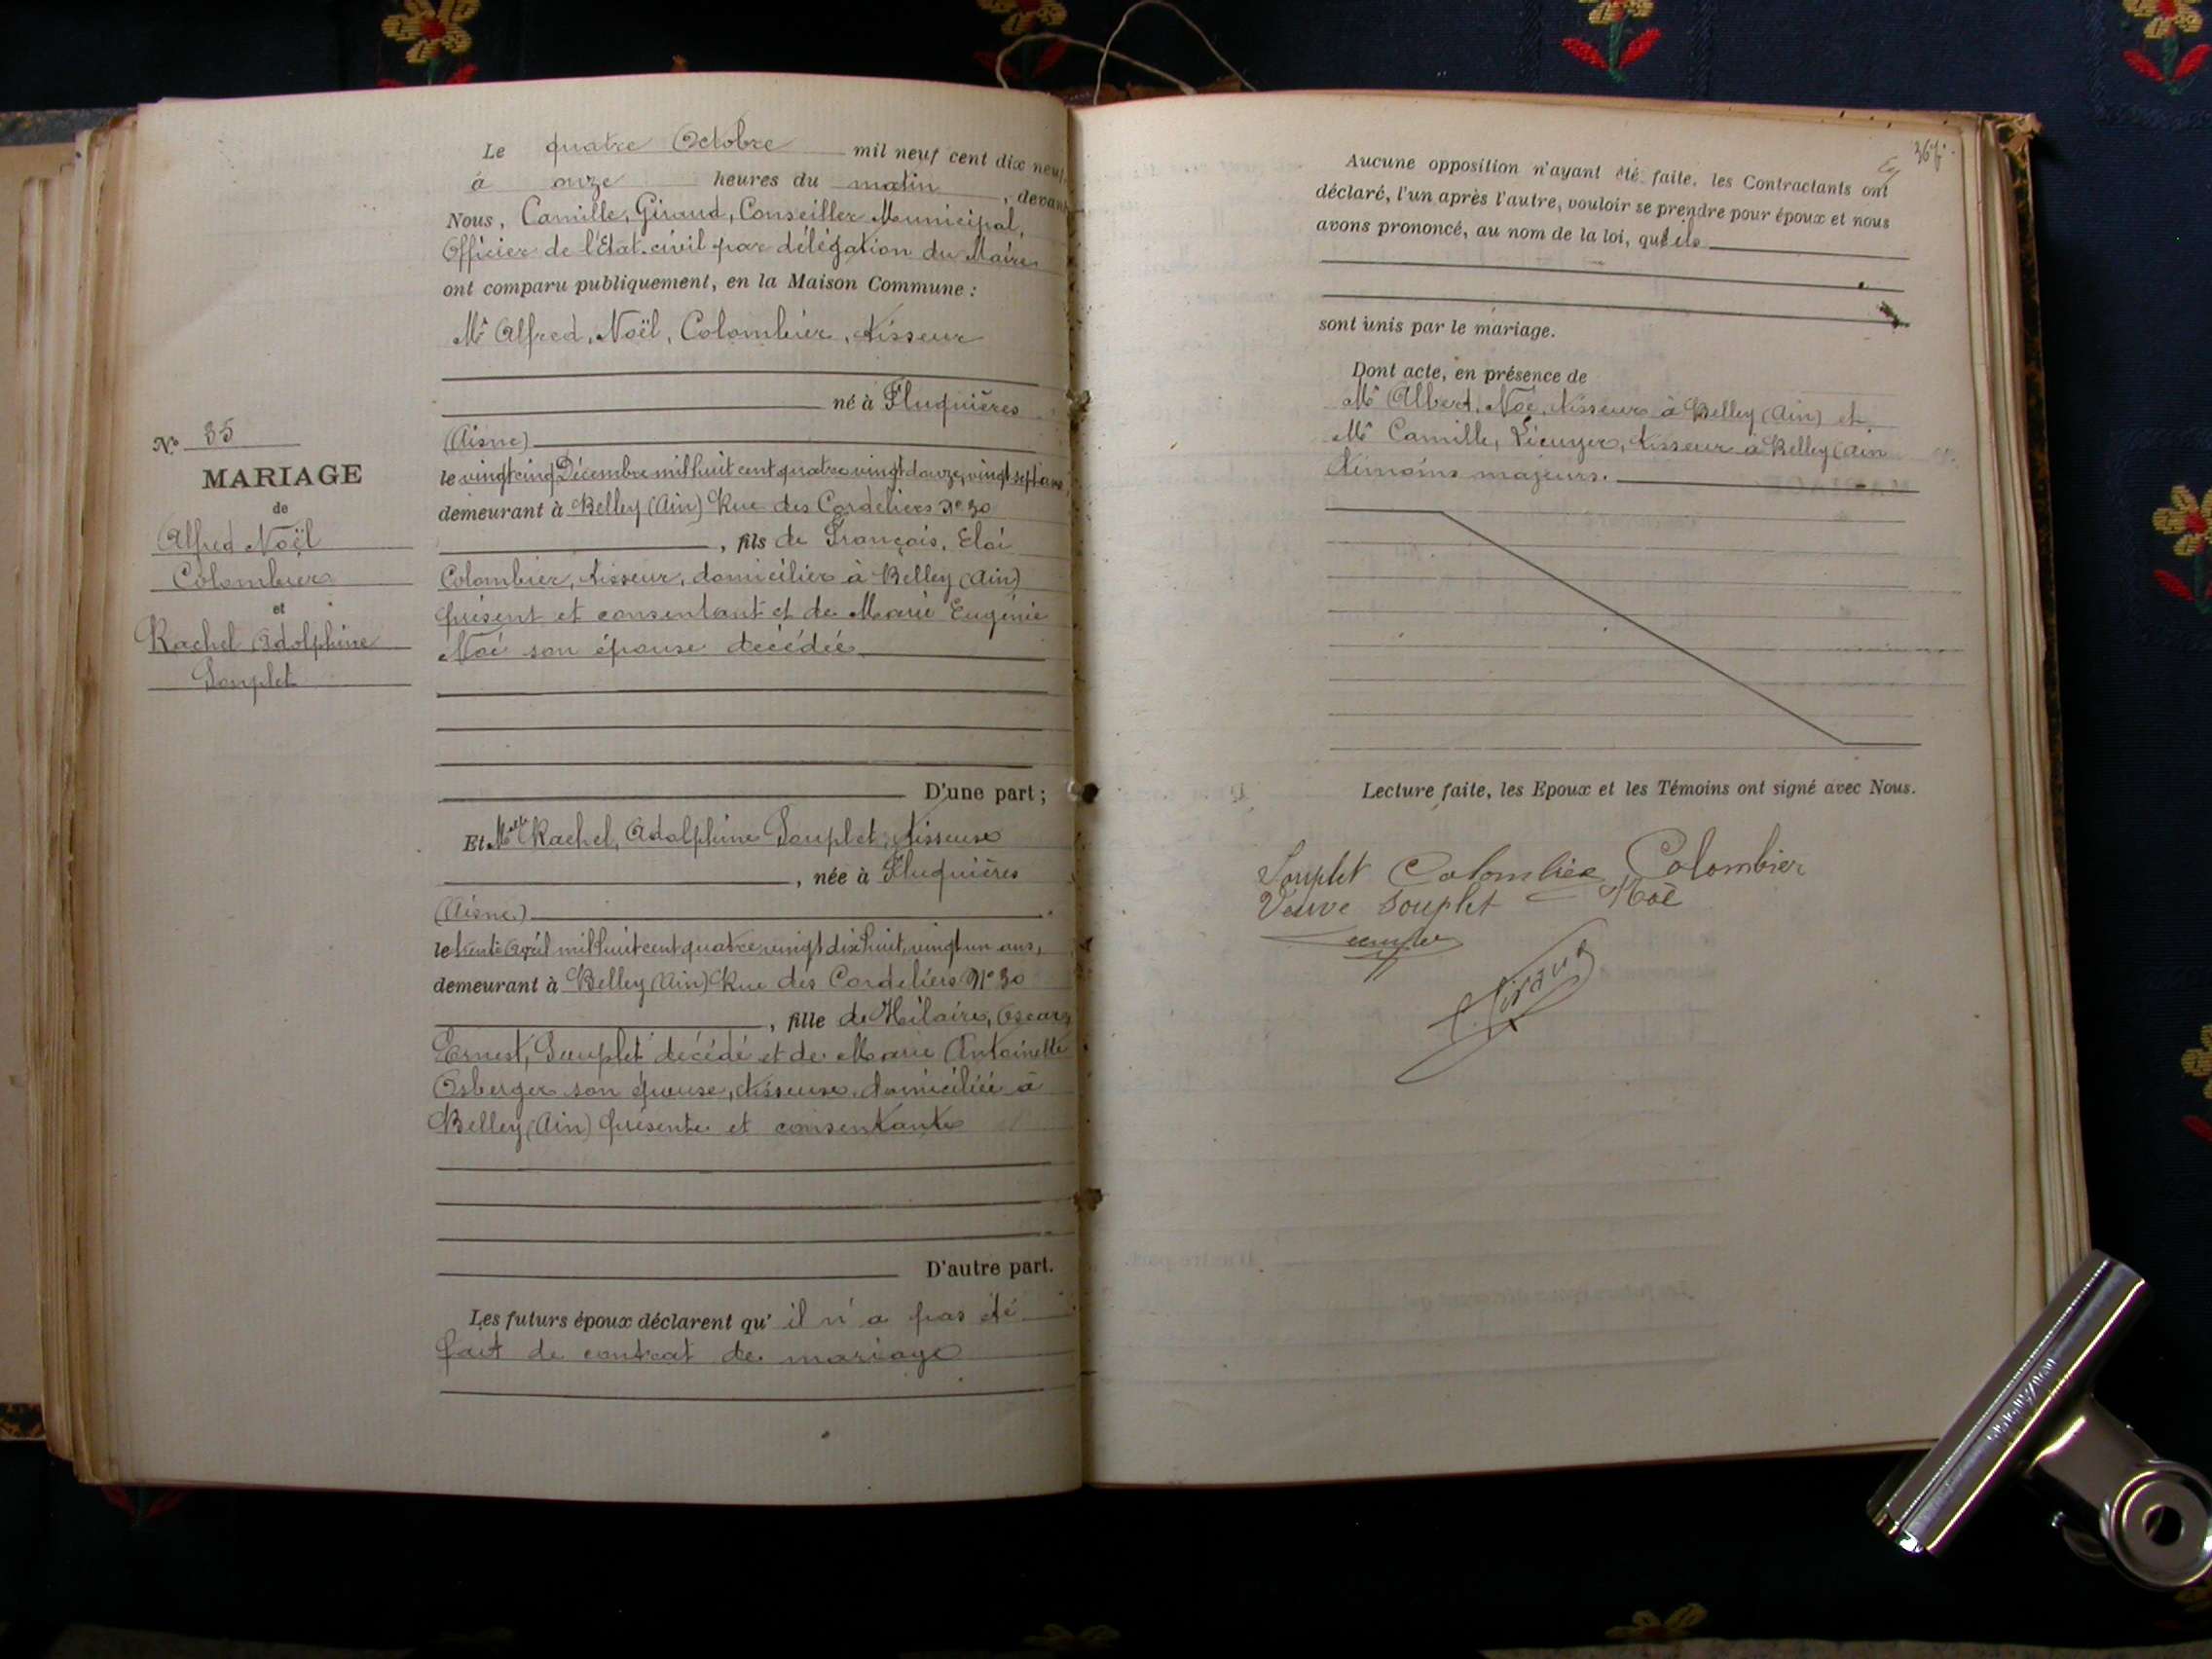 Le quatre Octobre mil neuf cent dix neuf
à onze heures du matin, devant
Nous, Camille, Giraud, Conseiller Municipal,
Officier de l'Etat-civil par délégation du Maire
ont comparu publiquement, en la Maison Commune :
Mr Alfred, Noël, Colombier, tisseur
né à Fluquières
(Aisne)
le vingt cinq Décembre mil huit cent quatre vingt douze, vingt sept ans,
demeurant à Belley (Ain) Rue des Cordeliers No 30
, fils de François, Eloi
Colombier, tisseur, domicilier à Belley (Ain)
présent et consentant et de Marie Eugénie
Noé son épouse décédée
D'une part ;
No 35
MARIAGE
de
Alfred Noël
Colombier
et
Rachel Adolphine
Souplet
Et Melle Rachel, Adolphine Souplet, tisseuse
, née à Fluquières
(Aisne)
le trente Avril mil huit cent quatre vingt dix huit, vingt un ans,
demeurant à Belley (Ain) Rue des Cordeliers No 30
, fille de Hilaire, Oscar,
Ernest, Souplet décédé et de Marie Antoinette
Osberger son épouse, tisseuse, domiciliée à
Belley, (Ain) présente et consentante
D'autre part.
Les futurs époux déclarent qu' il n'a pas été
fait de contrat de mariage
367
Aucune opposition n'ayant été faite, les Contractants ont
déclaré, l'un après l'autre, vouloir se prendre pour époux et nous
avons prononcé, au nom de la loi, qu'ils
sont unis par le mariage.
Dont acte, en présence de
Mr Albert, Noé, tisseur à Belley (Ain) et
Mr Camille, Lécuyer, tisseur à Belley (Ain
témoins majeurs.
Lecture faite, les Epoux et les Témoins ont signé avec Nous.
Souplet Colombier Colombier
Veuve Souplet Noé
C. Giraud